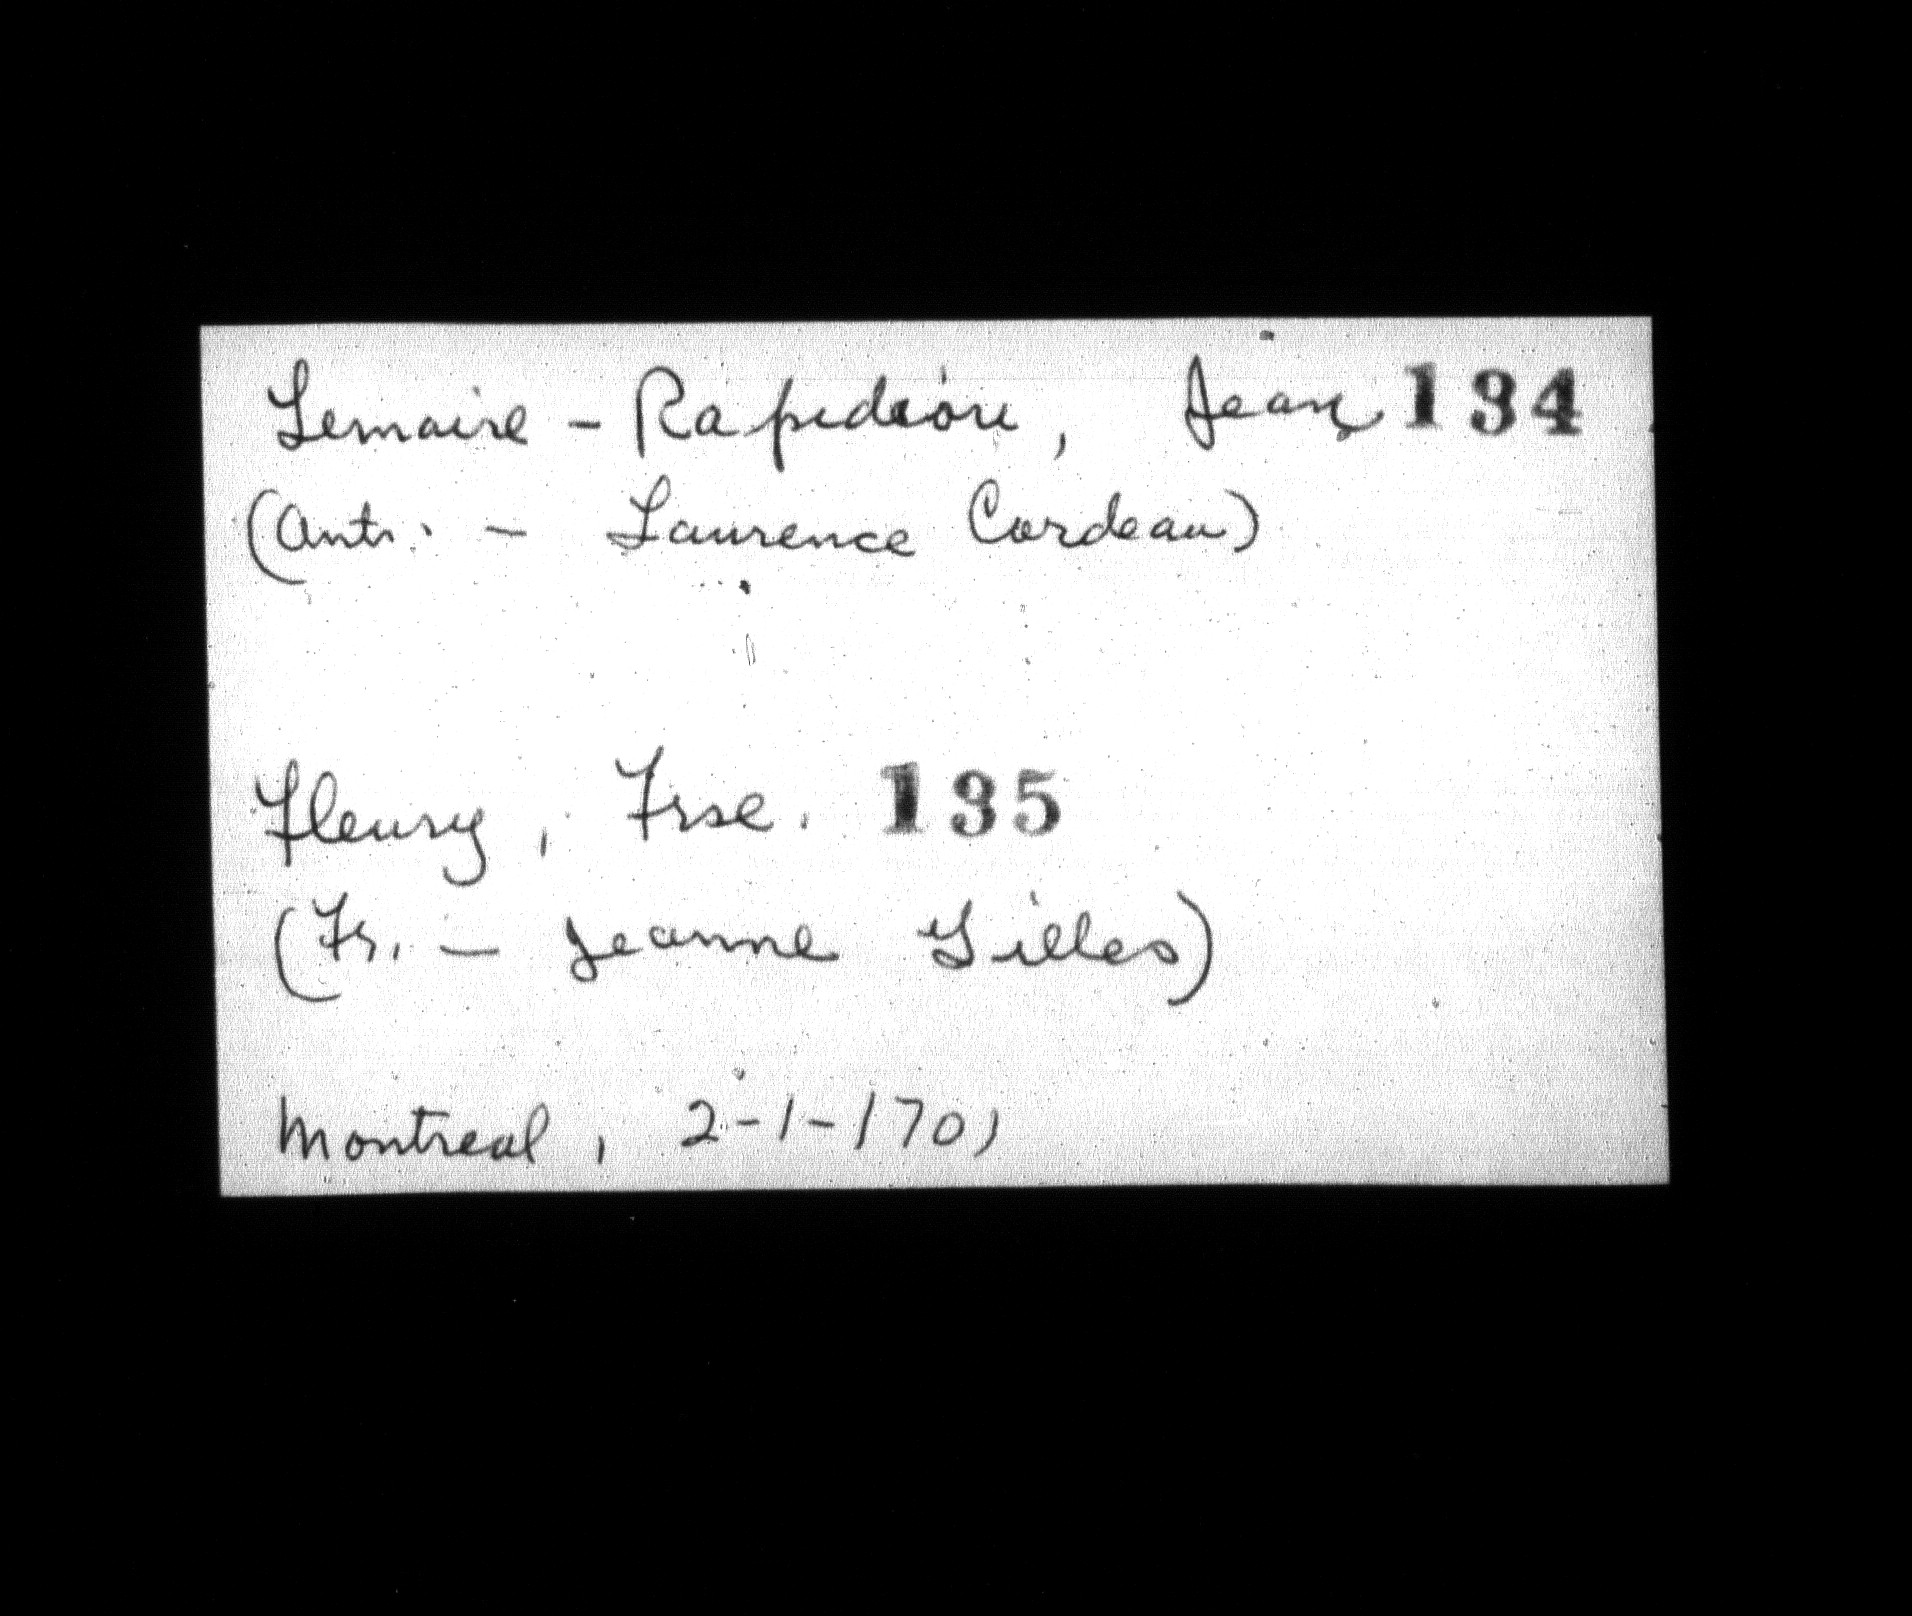 Lemaire - Rapidiou, Jean 134
(Ant. - Laurence Cordeau)
Fleury, Frse. 135
(Fr. - Jeanne Gilles)
Montreal, 2-1-1701